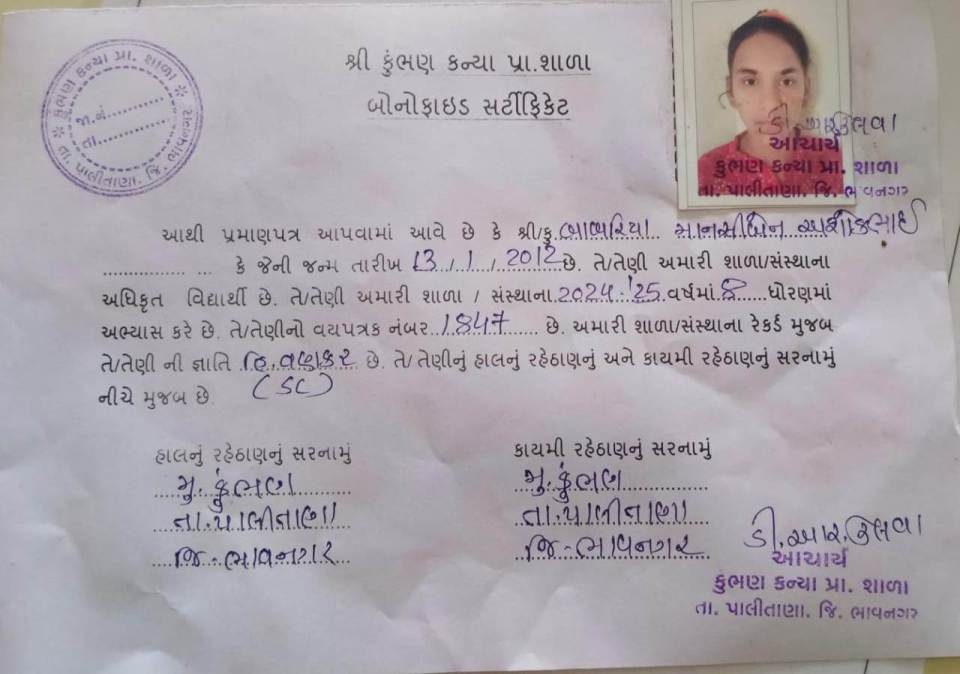 શ્રી કુંભણ કન્યા પ્રા.શાળા
બોનોફાઇડ સર્ટીફિકેટ
* કુંભણ કન્યા પ્રા. શાળા *
જા.નં.............
તા.............
તા. પાલીતાણા. જિ. ભાવનગર
ડી. આર. કુલવા
આચાર્ય
કુંભણ કન્યા પ્રા. શાળા
તા. પાલીતાણા. જિ. ભાવનગર
આથી પ્રમાણપત્ર આપવામાં આવે છે કે શ્રી/કુ. બાબરિયા માનસીબેન અશોકભાઈ
.................. ... કે જેની જન્મ તારીખ 13 / 1 / 2012 છે. તે/તેણી અમારી શાળા/સંસ્થાના
અધિકૃત વિદ્યાર્થી છે. તે/તેણી અમારી શાળા / સંસ્થાના 2024-'25 વર્ષમાં 8 ધોરણમાં
અભ્યાસ કરે છે. તે/તેણીનો વયપત્રક નંબર 1847 છે. અમારી શાળા/સંસ્થાના રેકર્ડ મુજબ
તે/તેણી ની જ્ઞાતિ હિ. વણકર છે. તે/ તેણીનું હાલનું રહેઠાણનું અને કાયમી રહેઠાણનું સરનામું
(SC)
નીચે મુજબ છે.
હાલનું રહેઠાણનું સરનામું
મુ. કુંભણ
તા. પાલીતાણા
જિ- ભાવનગર
કાયમી રહેઠાણનું સરનામું
મુ. કુંભણ
તા. પાલીતાણા
જિ- ભાવનગર
ડી. આર. કુલવા
આચાર્ય
કુંભણ કન્યા પ્રા. શાળા
તા. પાલીતાણા. જિ. ભાવનગર